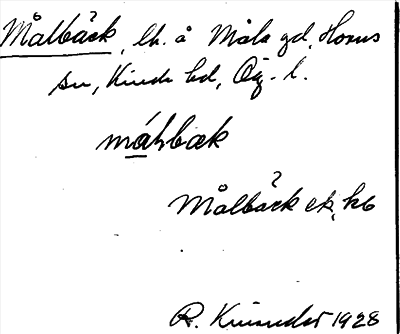 Målbäck, lh. å Måla gd, Horns
sn, Kinda hd, Ög. l.
måhbæk
?
Målbäck ek, kb
R. 1928